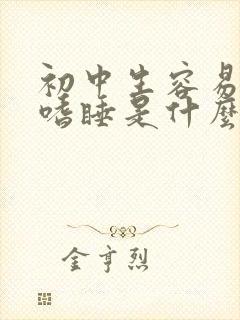 初中生容易
嗜睡是什麼
金亨烈